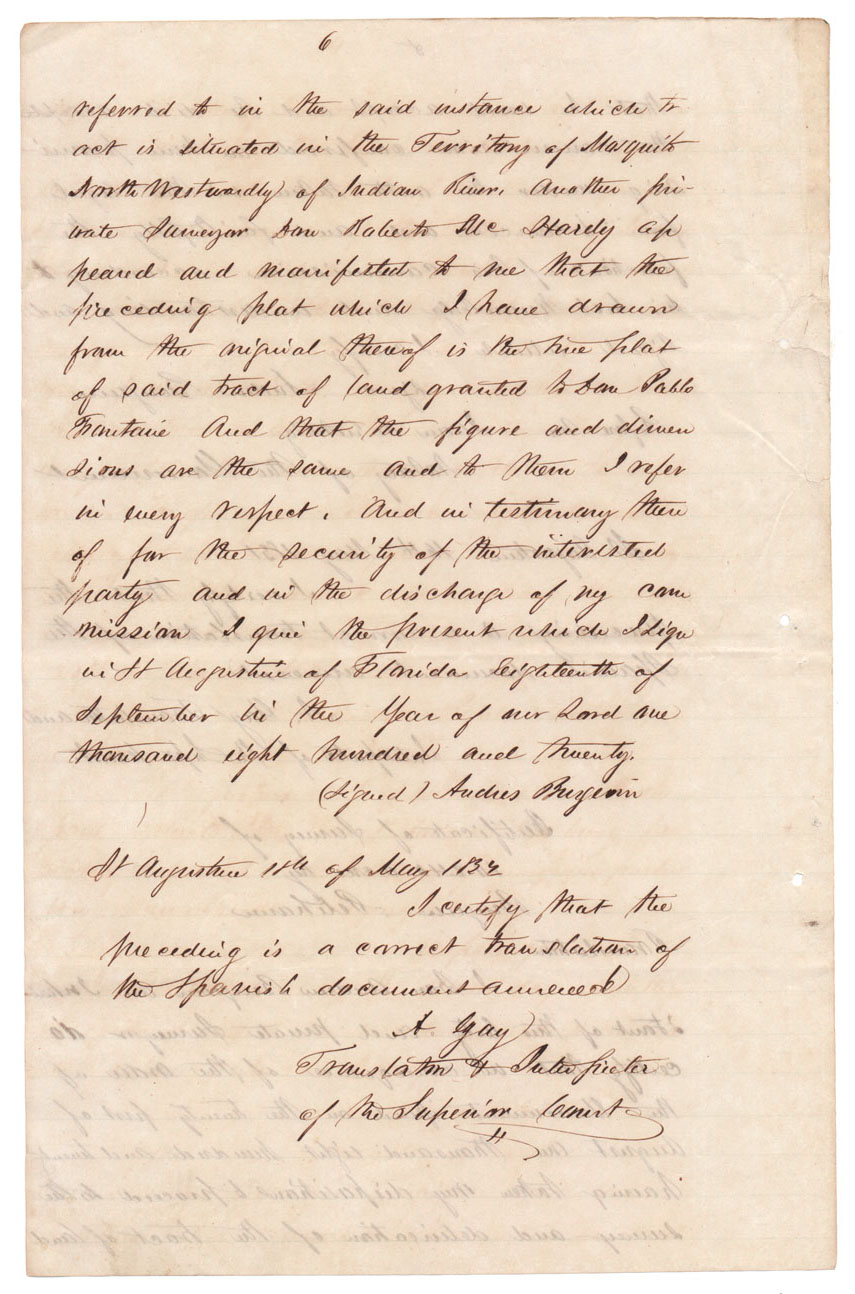 6
referred to in the said instance which tr
act is situated in the Territory of Mosquito
North Westwardly of Indian River. Another pri-
vate Surveyor Don Roberto Mc Hardy ap
peared and manifested to me that the
preceding plat which I have drawn
from the original thereof is the true plat
of said tract of land granted to Don Pablo
Fontane And that the figure and dimen
sions are the same and to them I refer
in every respect. And in testimony there
of for the security of the interested
party and in the discharge of my com
mission I give the present which I sign
in St Augustine of Florida Eighteenth of
September in the Year of our Lord one
thousand eight hundred and twenty.
(signed) Andres Burgevin
St Augustine 18th of May 1832
I certify that the
preceding is a correct translation of
the Spanish document annexed
A. Gay
Translator & Interpreter
of the Superior Court